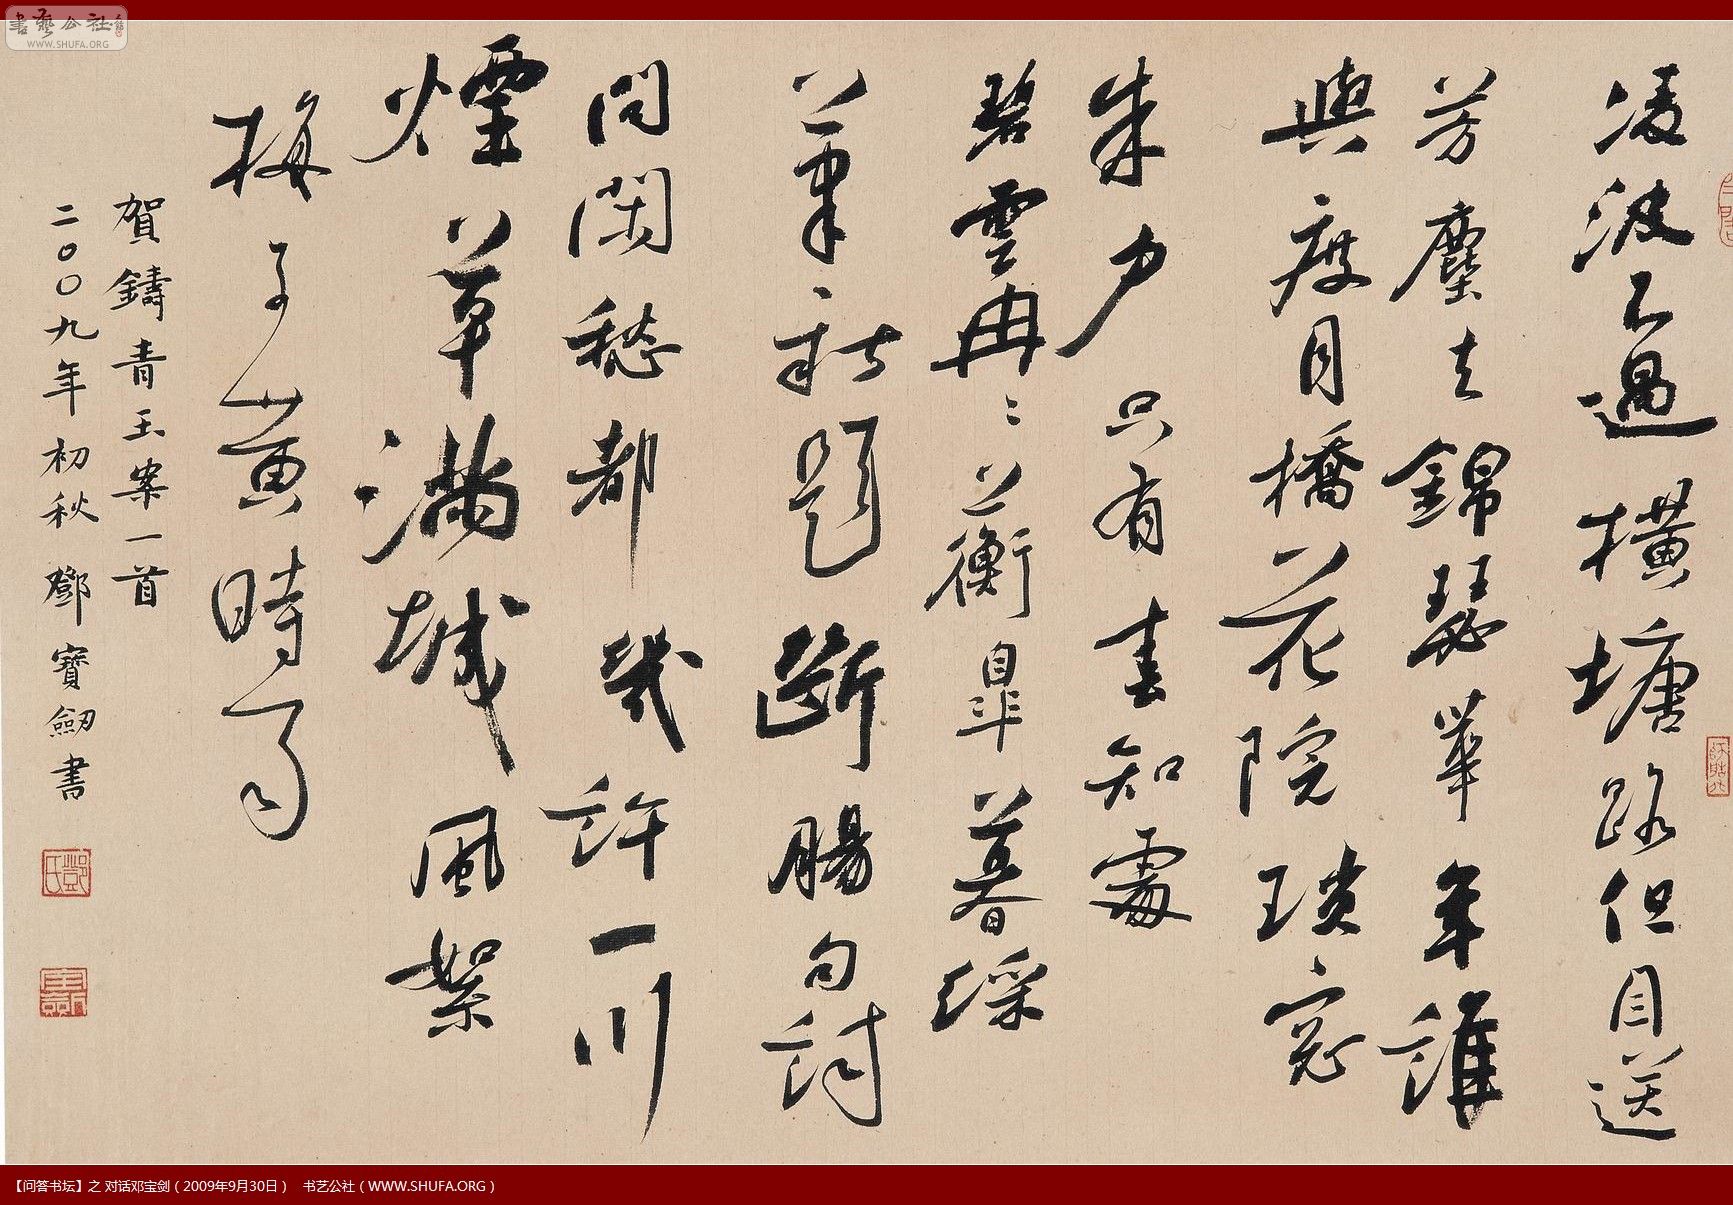 書藝公社
WWW.SHUFA.ORG
凌波不過橫塘路但目送
芳塵去錦瑟華年誰
與度月橋花院瑣窓
朱户只有春知處
碧雲冉〻蘅皋暮綵
筆新題斷腸句試
問閑愁都幾許一川
煙草滿城風絮
梅子黃時雨
賀鑄青玉案一首
二〇〇九年初秋 鄧寶劔書
鄧氏
【问答书坛】之 对话邓宝剑（2009年9月30日） 书艺公社（WWW.SHUFA.ORG）